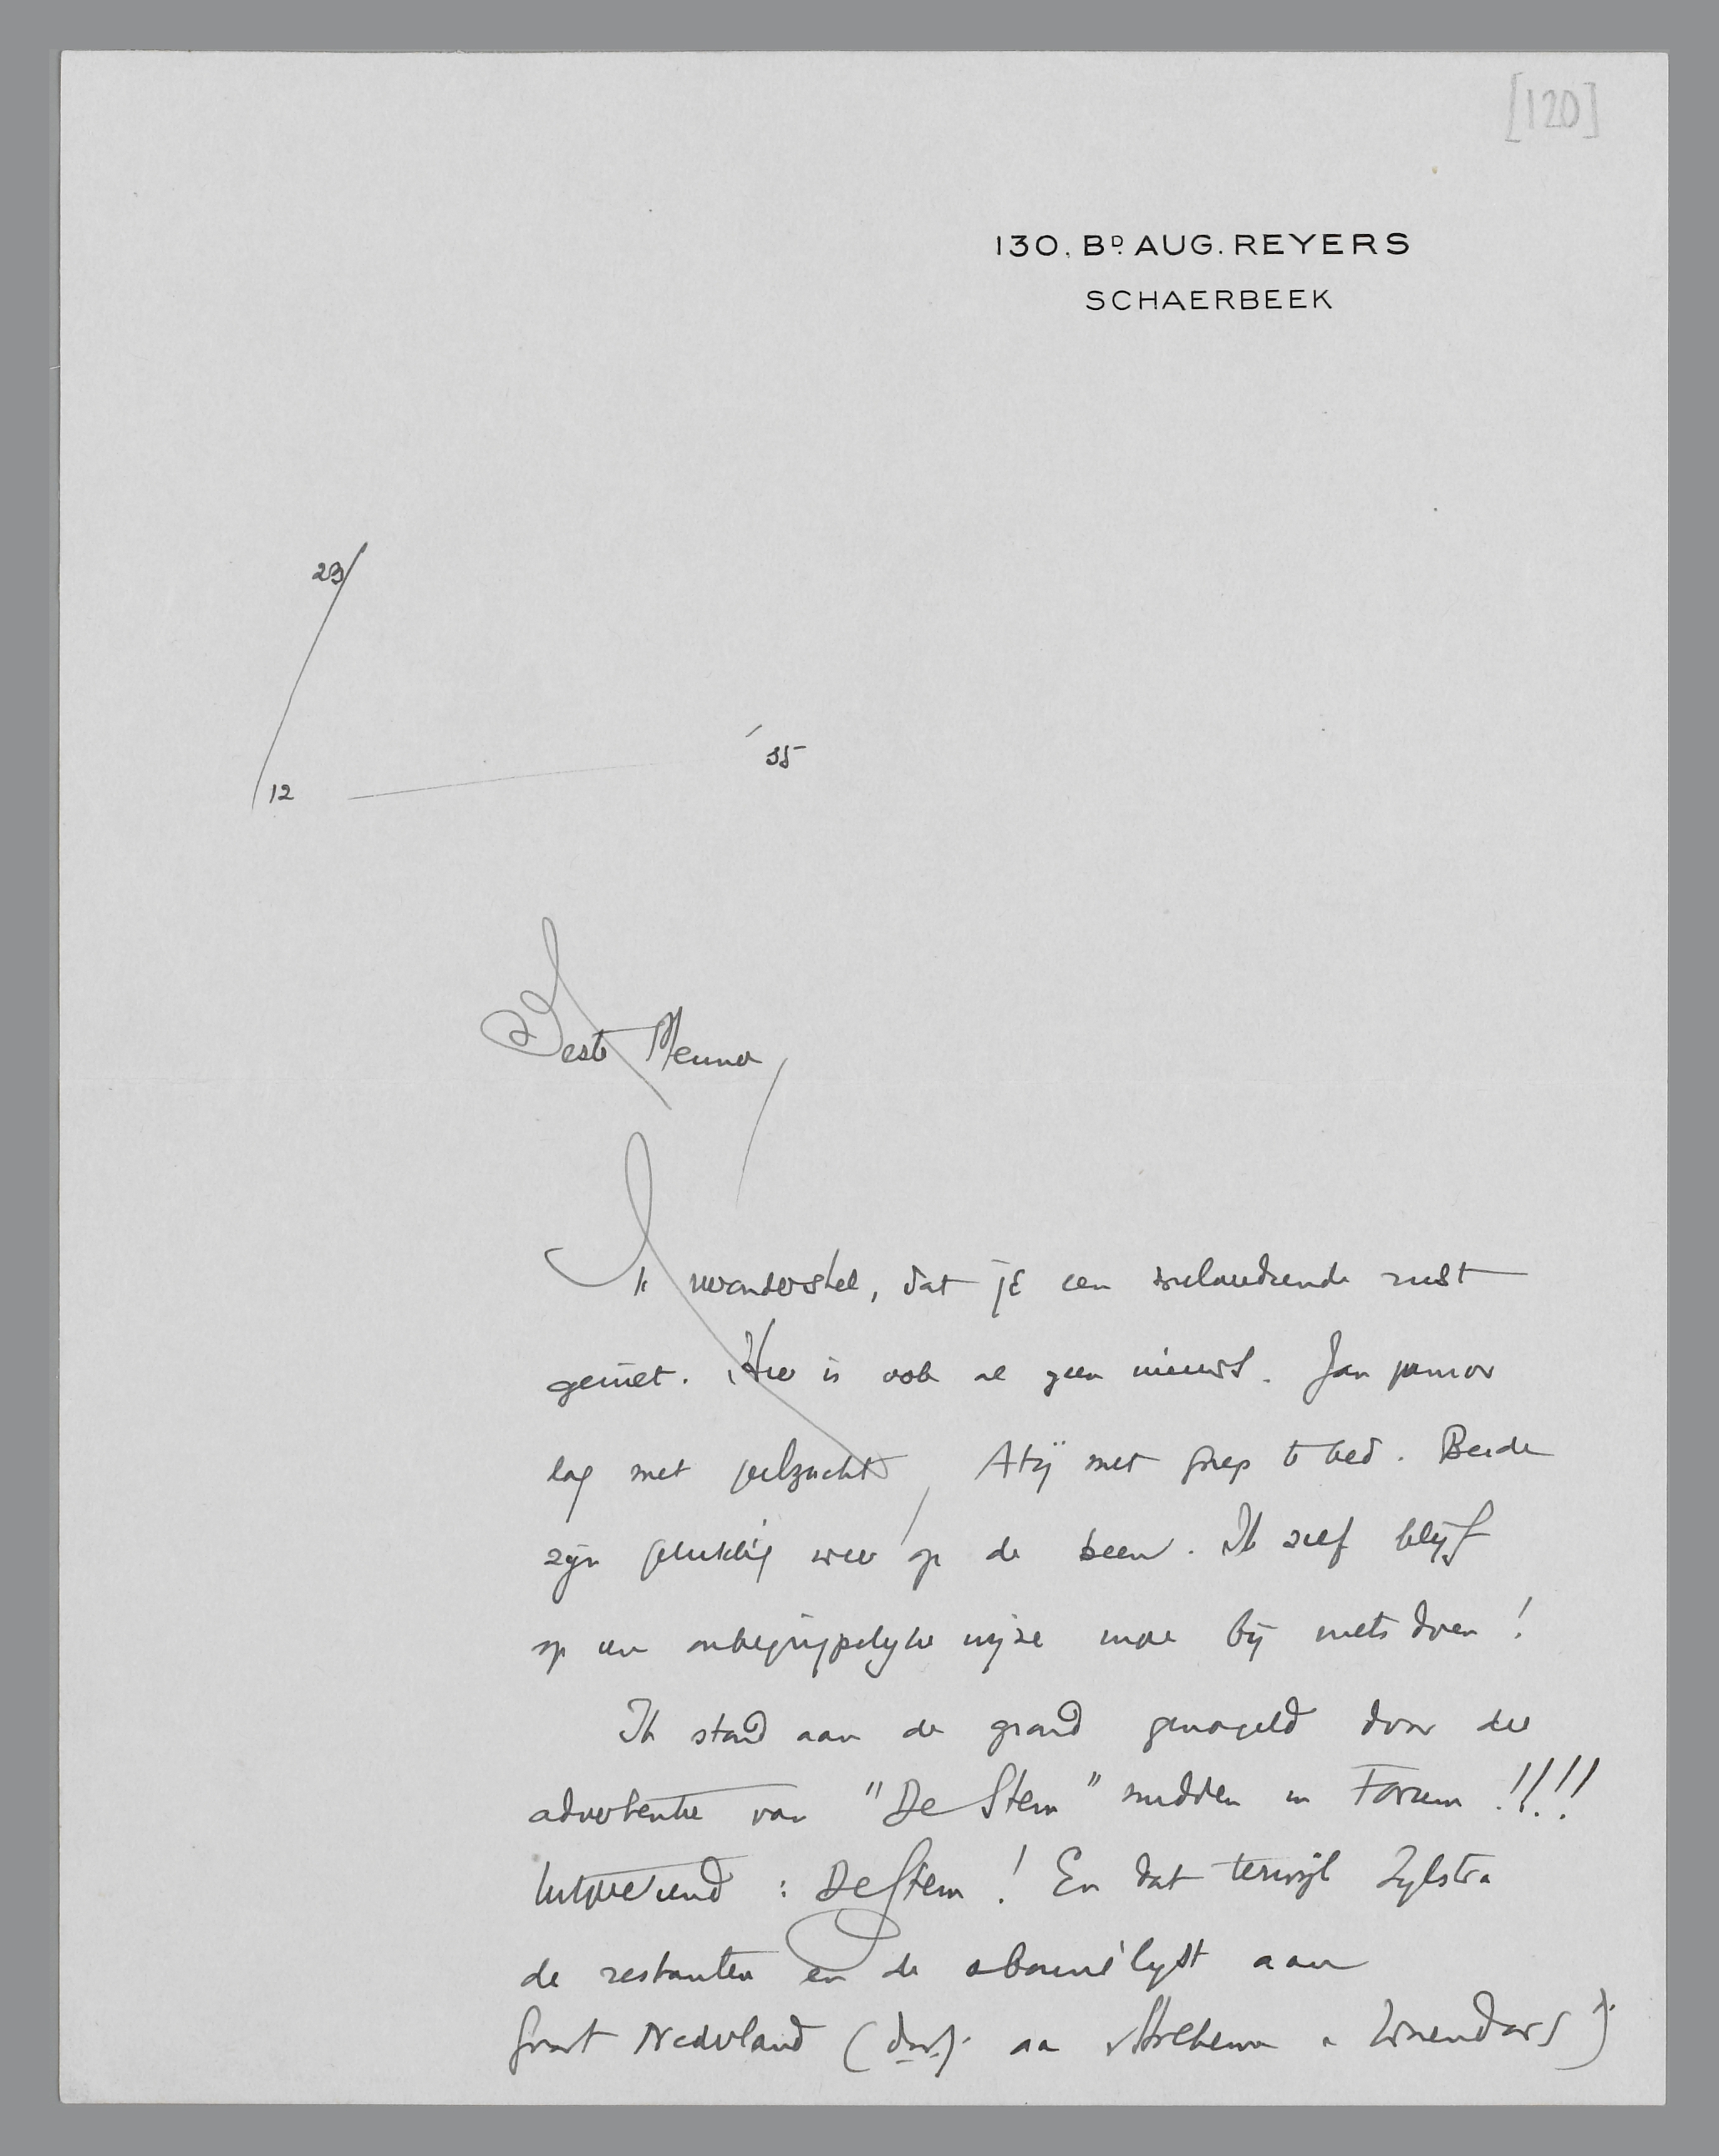 [120]
130. BD. AUG. REYERS
SCHAERBEEK
29/
12 '35
Beste Menno,
Ik veronderstel, dat je een weldoende rust
geniet. Hier is ook al geen nieuws. Jan junior
lag met geelzucht, Atÿ met griep te bed. Beide
zijn gelukkig weer op de been. Ik zelf blijf
op een onbegrijpelijke wijze moe bij niets doen!
Ik stond aan de grond genageld door de
advertentie van "De Stem" midden in Forum!!!!
: De Stem! En dat terwijl Zijlstra
de restanten en de abonnélijst aan
Groot Nederland (d.w.z. aan v. Arckema & Warendorf).